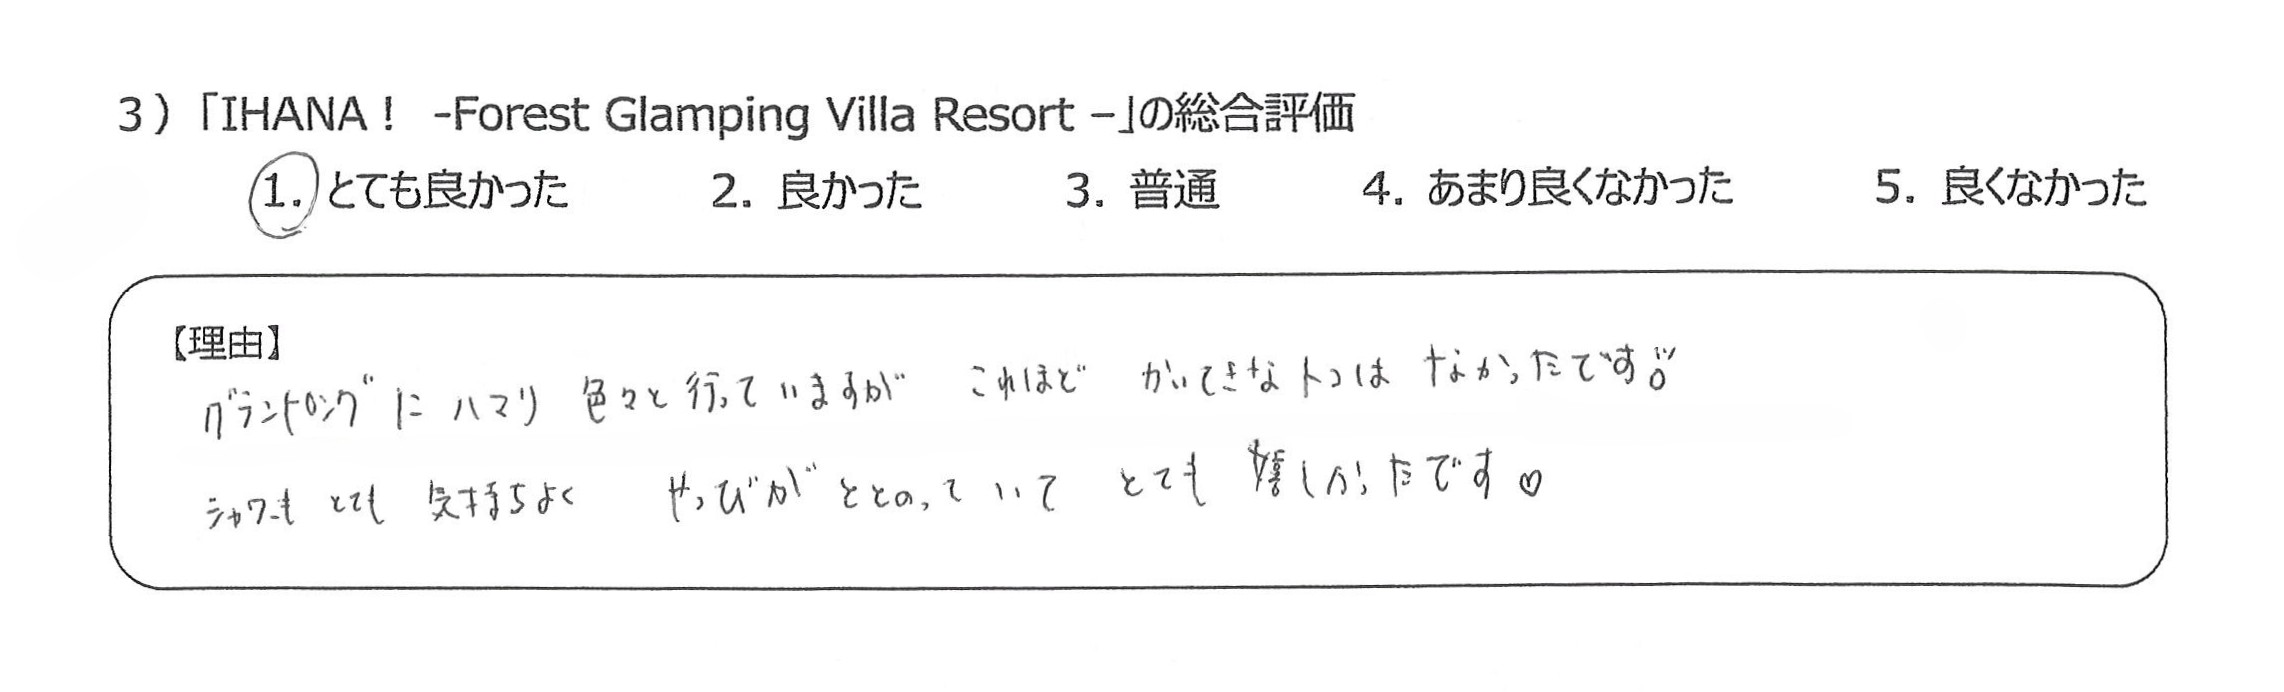 3）「IHANA！ -Forest Glamping Villa Resort –」の総合評価
1. とても良かった 2. 良かった 3. 普通 4. あまり良くなかった 5. 良くなかった
【理由】
グランピングにハマり 色々と行っていますが これほど かいてきなトコは なかったです!!
シャワーも とても 気持ちよく せつびが ととのっていて とても 嬉しかったです♡